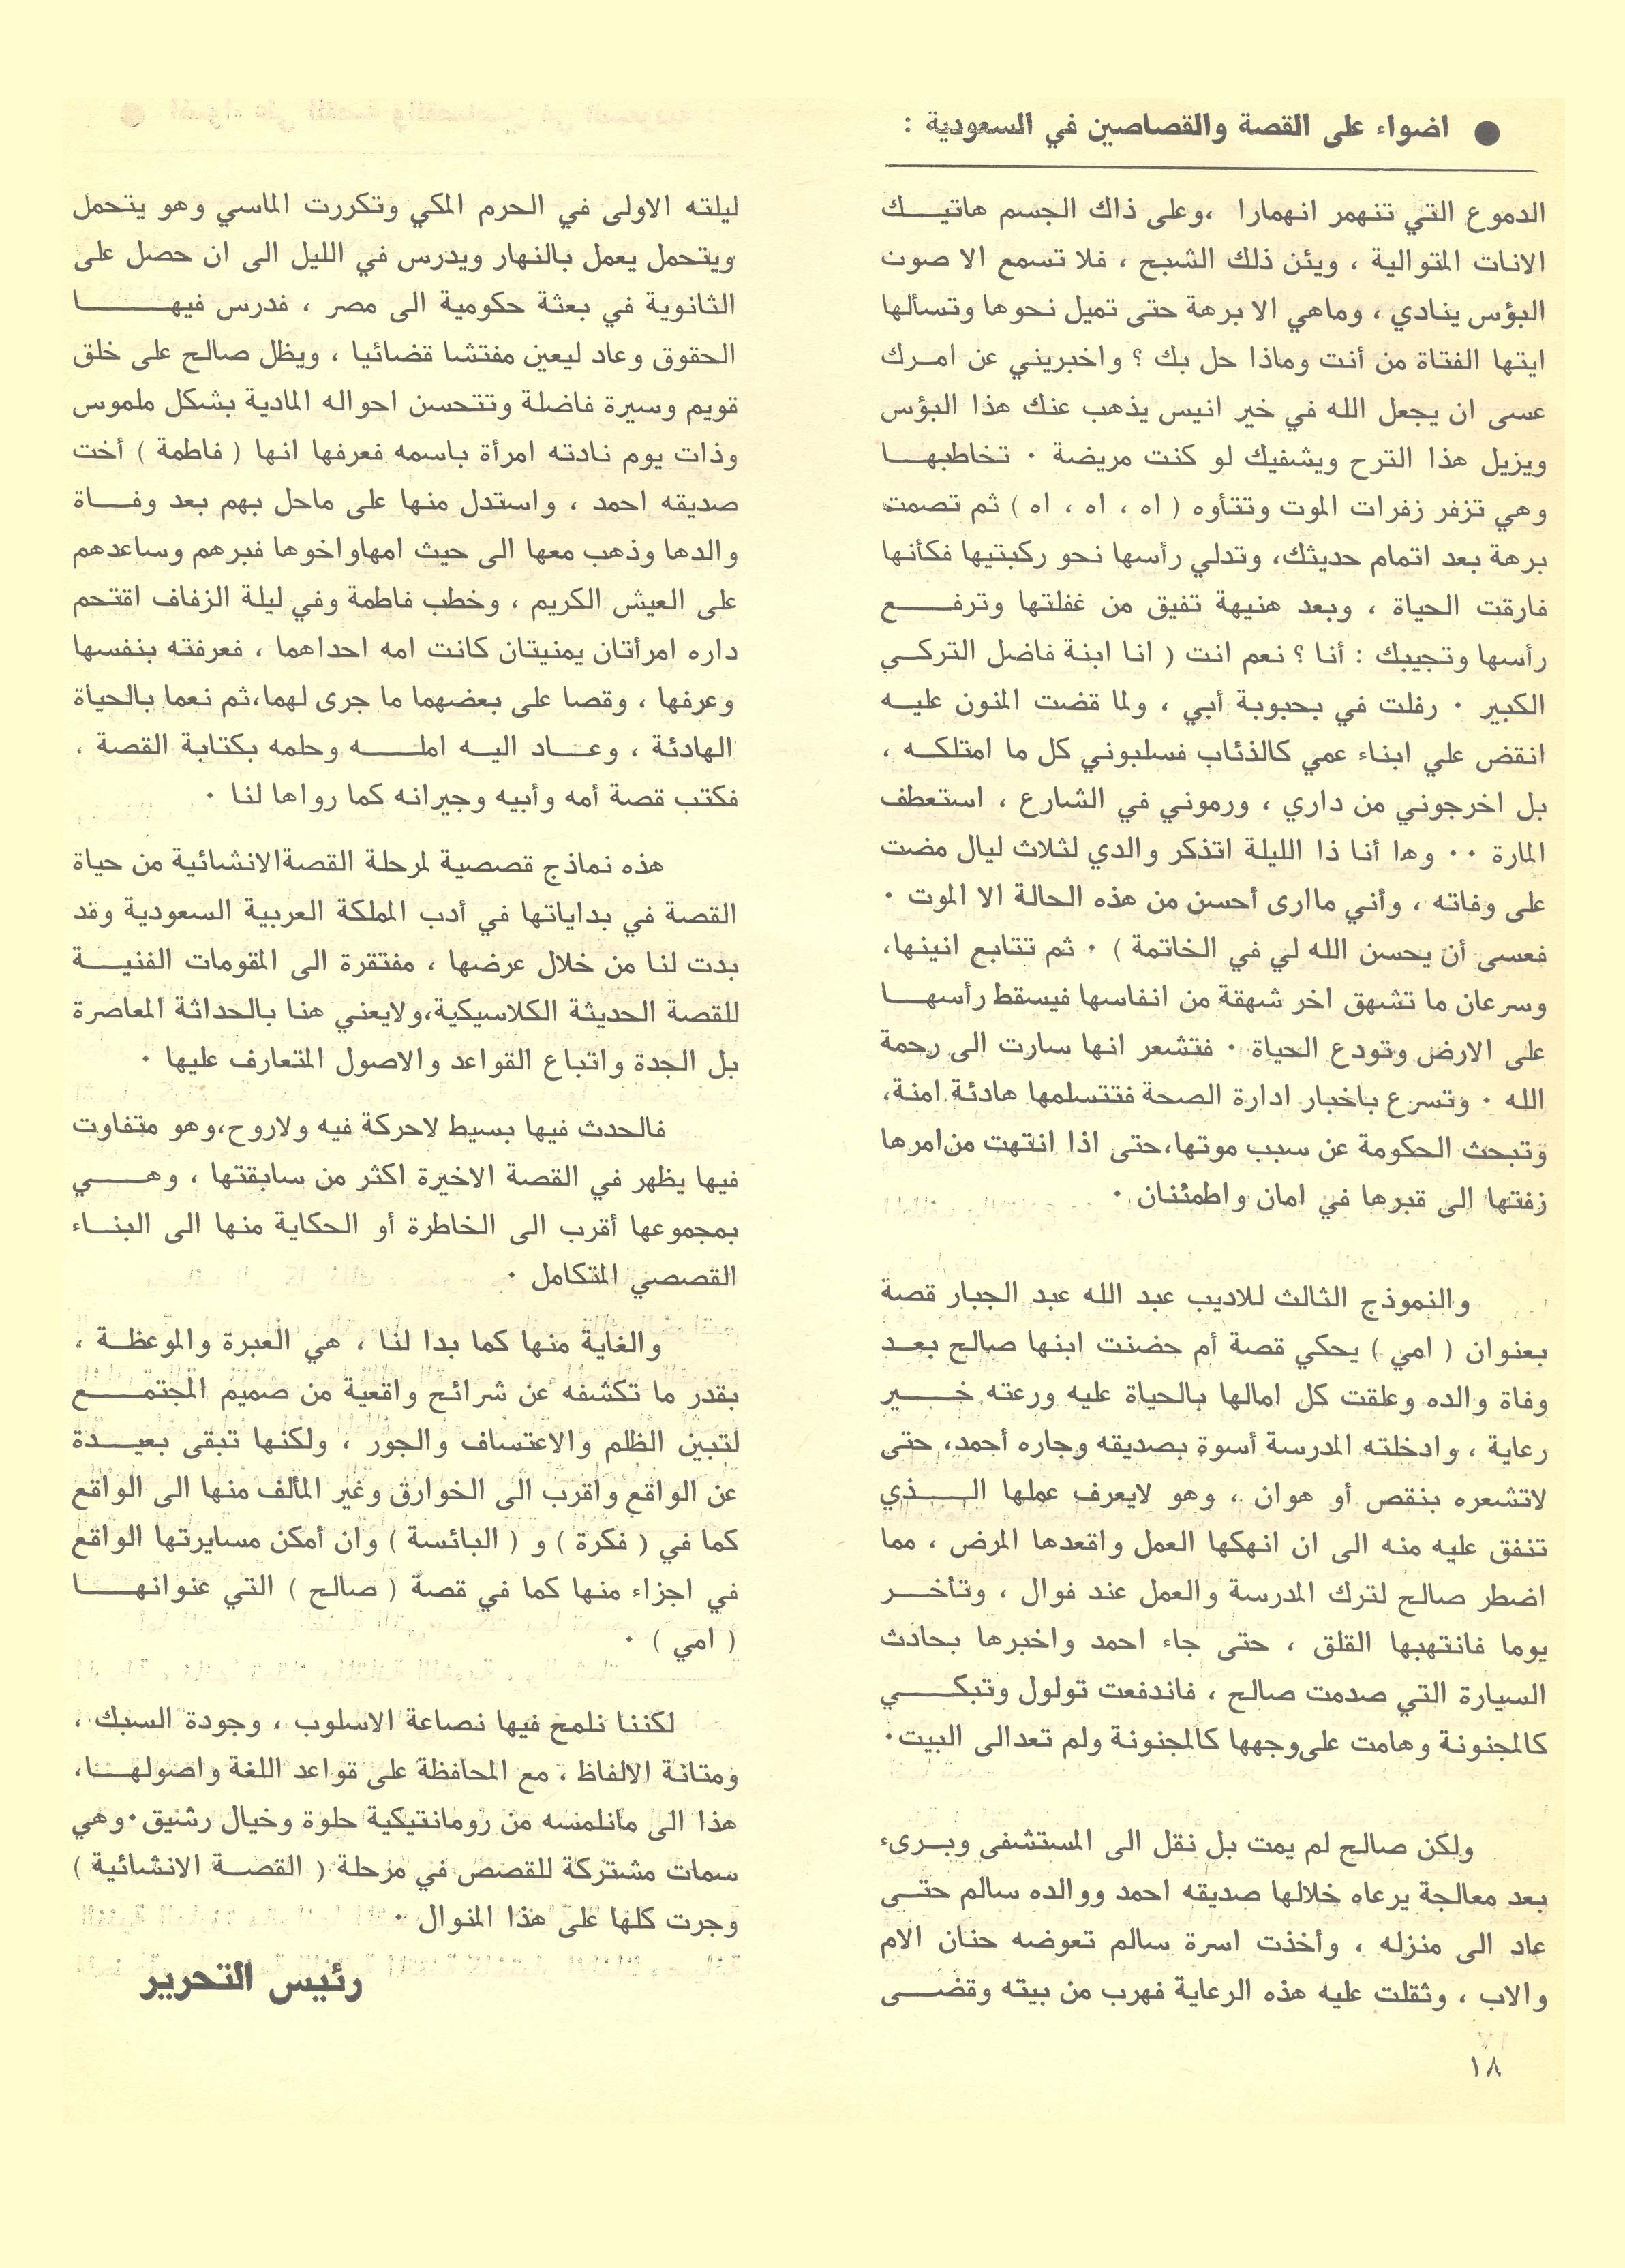 ● اضواء على القصة والقصاصين في السعودية :
الدموع التي تنهمر انهمارا ،وعلى ذاك الجسم هاتيك
الانات المتوالية ، ويئن ذلك الشبح ، فلا تسمع الا صوت
البؤس ينادي ، وماهي الا برهة حتى تميل نحوها وتسألها
ايتها الفتاة من أنت وماذا حل بك ؟ واخبريني عن امرك
عسى ان يجعل الله في خير انيس يذهب عنك هذا البؤس
ويزيل هذا الترح ويشفيك لو كنت مريضة ٠ تخاطبها
وهي تزفر زفرات الموت وتتأوه ( اه ، اه ، اه ) ثم تصمت
برهة بعد اتمام حديثك، وتدلي رأسها نحو ركبتيها فكأنها
فارقت الحياة ، وبعد هنيهة تفيق من غفلتها وترفع
رأسها وتجيبك : أنا ؟ نعم انت ( انا ابنة فاضل التركي
الكبير ٠ رفلت في بحبوبة أبي ، ولما قضت المنون عليه
انقض علي ابناء عمي كالذئاب فسلبوني كل ما امتلكه ،
بل اخرجوني من داري ، ورموني في الشارع ، استعطف
المارة ٠٠ وها أنا ذا الليلة اتذكر والدي لثلاث ليال مضت
على وفاته ، وأني ماارى أحسن من هذه الحالة الا الموت ٠
فعسى أن يحسن الله لي في الخاتمة ) ٠ ثم تتابع انينها،
وسرعان ما تشهق اخر شهقة من انفاسها فيسقط رأسها
على الارض وتودع الحياة ٠ فتشعر انها سارت الى رحمة
الله ٠ وتسرع باخبار ادارة الصحة فتتسلمها هادئة امنة،
وتبحث الحكومة عن سبب موتها،حتى اذا انتهت من امرها
زفتها الى قبرها في امان واطمئنان ٠
والنموذج الثالث للاديب عبد الله عبد الجبار قصة
بعنوان ( امي ) يحكي قصة أم حضنت ابنها صالح بعد
وفاة والده وعلقت كل امالها بالحياة عليه ورعته خير
رعاية ، وادخلته المدرسة أسوة بصديقه وجاره أحمد، حتى
لاتشعره بنقص أو هوان ، وهو لايعرف عملها الذي
تنفق عليه منه الى ان انهكها العمل واقعدها المرض ، مما
اضطر صالح لترك المدرسة والعمل عند فوال ، وتأخر
يوما فانتهبها القلق ، حتى جاء احمد واخبرها بحادث
السيارة التي صدمت صالح ، فاندفعت تولول وتبكي
كالمجنونة وهامت على وجهها كالمجنونة ولم تعد الى البيت٠
ولكن صالح لم يمت بل نقل الى المستشفى وبرىء
بعد معالجة يرعاه خلالها صديقه احمد ووالده سالم حتى
عاد الى منزله ، وأخذت اسرة سالم تعوضه حنان الام
والاب ، وثقلت عليه هذه الرعاية فهرب من بيته وقضى
ليلته الاولى في الحرم المكي وتكررت الماسي وهو يتحمل
ويتحمل يعمل بالنهار ويدرس في الليل الى ان حصل على
الثانوية في بعثة حكومية الى مصر ، فدرس فيها
الحقوق وعاد ليعين مفتشا قضائيا ، ويظل صالح على خلق
قويم وسيرة فاضلة وتتحسن احواله المادية بشكل ملموس
وذات يوم نادته امرأة باسمه فعرفها انها ( فاطمة ) أخت
صديقه احمد ، واستدل منها على ماحل بهم بعد وفاة
والدها وذهب معها الى حيث امها واخوها فبرهم وساعدهم
على العيش الكريم ، وخطب فاطمة وفي ليلة الزفاف اقتحم
داره امرأتان يمنيتان كانت امه احداهما ، فعرفته بنفسها
وعرفها ، وقصا على بعضهما ما جرى لهما،ثم نعما بالحياة
الهادئة ، وعاد اليه امله وحلمه بكتابة القصة ،
فكتب قصة أمه وأبيه وجيرانه كما رواها لنا ٠
هذه نماذج قصصية لمرحلة القصة الانشائية من حياة
القصة في بداياتها في أدب المملكة العربية السعودية وقد
بدت لنا من خلال عرضها ، مفتقرة الى المقومات الفنية
للقصة الحديثة الكلاسيكية،ولايعني هنا بالحداثة المعاصرة
بل الجدة واتباع القواعد والاصول المتعارف عليها ٠
فالحدث فيها بسيط لاحركة فيه ولاروح،وهو متفاوت
فيها يظهر في القصة الاخيرة اكثر من سابقتها ، وهي
بمجموعها أقرب الى الخاطرة أو الحكاية منها الى البناء
القصصي المتكامل ٠
والغاية منها كما بدا لنا ، هي العبرة والموعظة ،
بقدر ما تكشفه عن شرائح واقعية من صميم المجتمع
لتبين الظلم والاعتساف والجور ، ولكنها تبقى بعيدة
عن الواقع واقرب الى الخوارق وغير المألف منها الى الواقع
كما في ( فكرة ) و ( البائسة ) وان أمكن مسايرتها الواقع
في اجزاء منها كما في قصة ( صالح ) التي عنوانها
( امي ) ٠
لكننا نلمح فيها نصاعة الاسلوب ، وجودة السبك ،
ومتانة الالفاظ ، مع المحافظة على قواعد اللغة واصولها،
هذا الى مانلمسه من رومانتيكية حلوة وخيال رشيق٠وهي
سمات مشتركة للقصص في مرحلة ( القصة الانشائية )
وجرت كلها على هذا المنوال ٠
رئيس التحرير
١٨